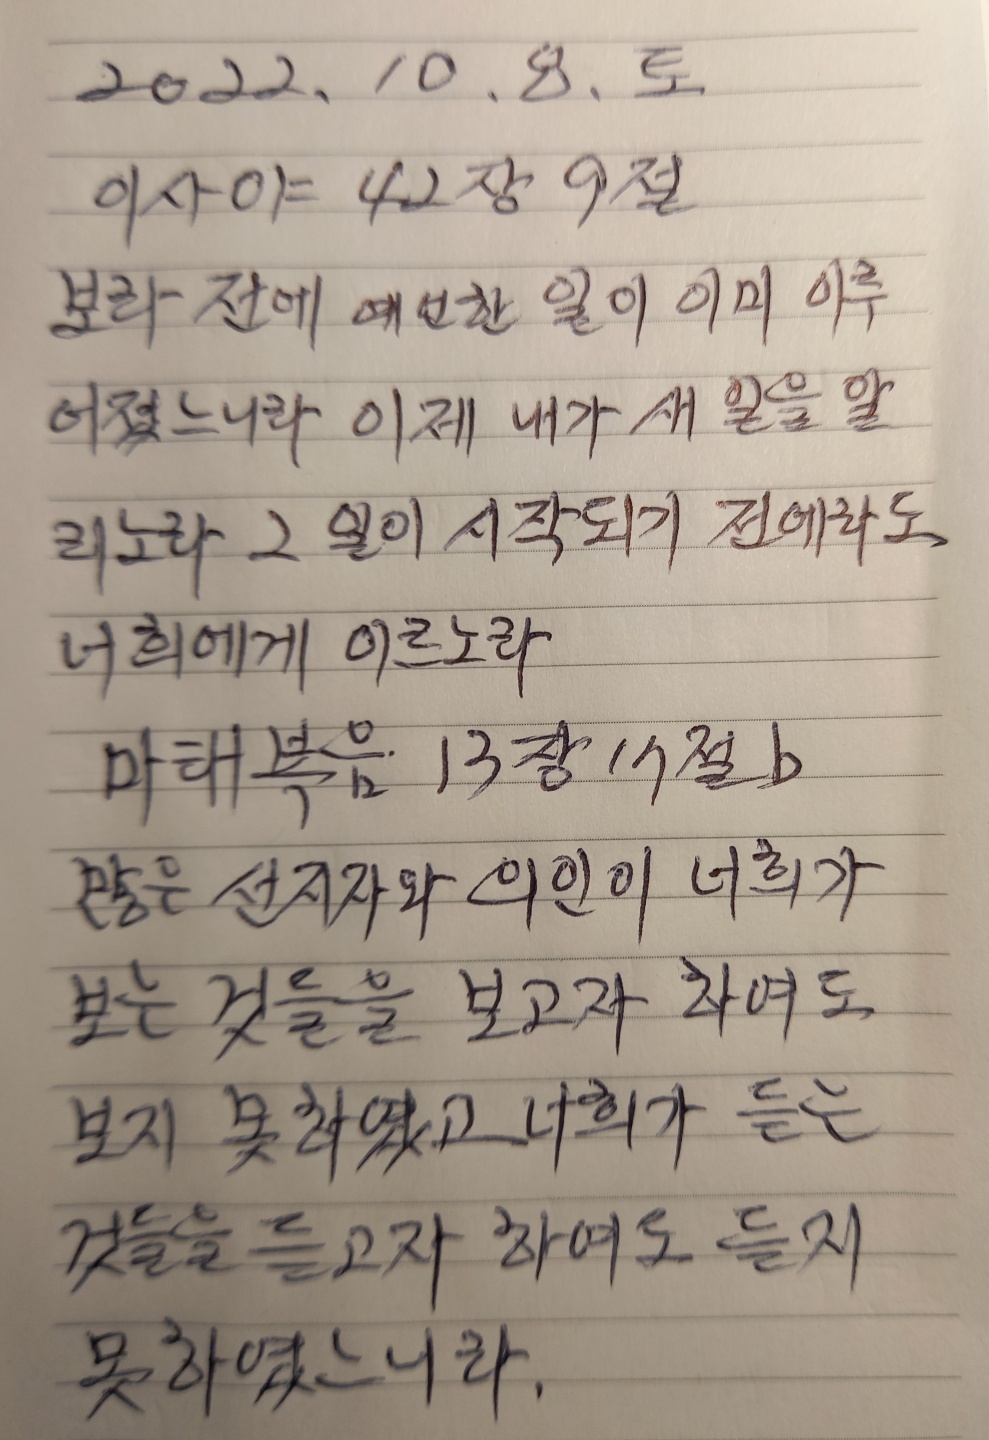 2022. 10. 8. 토
이사야 42장 9절
보라 전에 예언한 일이 이미 이루
어졌느니라 이제 내가 새 일을 알
리노라 그 일이 시작되기 전에라도
너희에게 이르노라
마태복음 13장 17절 b
많은 선지자와 의인이 너희가
보는 것들을 보고자 하여도
보지 못하였고 너희가 듣는
것들을 듣고자 하여도 듣지
못하였느니라.